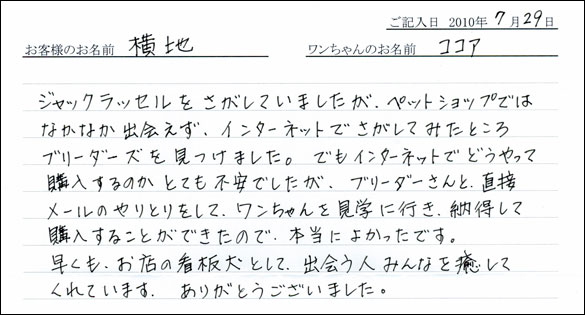 ご記入日 2010年 7月29日
お客様のお名前 横地 ワンちゃんのお名前 ココア
ジャックラッセルをさがしていましたが、ペットショップでは
なかなか出会えず、インターネットでさがしてみたところ
ブリーダーズを見つけました。でもインターネットでどうやって
購入するのかとても不安でしたが、ブリーダーさんと、直接
メールのやりとりをして、ワンちゃんを見学に行き、納得して
購入することができたので、本当によかったです。
早くも、お店の看板犬として、出会う人みんなを癒して
くれています。ありがとうございました。